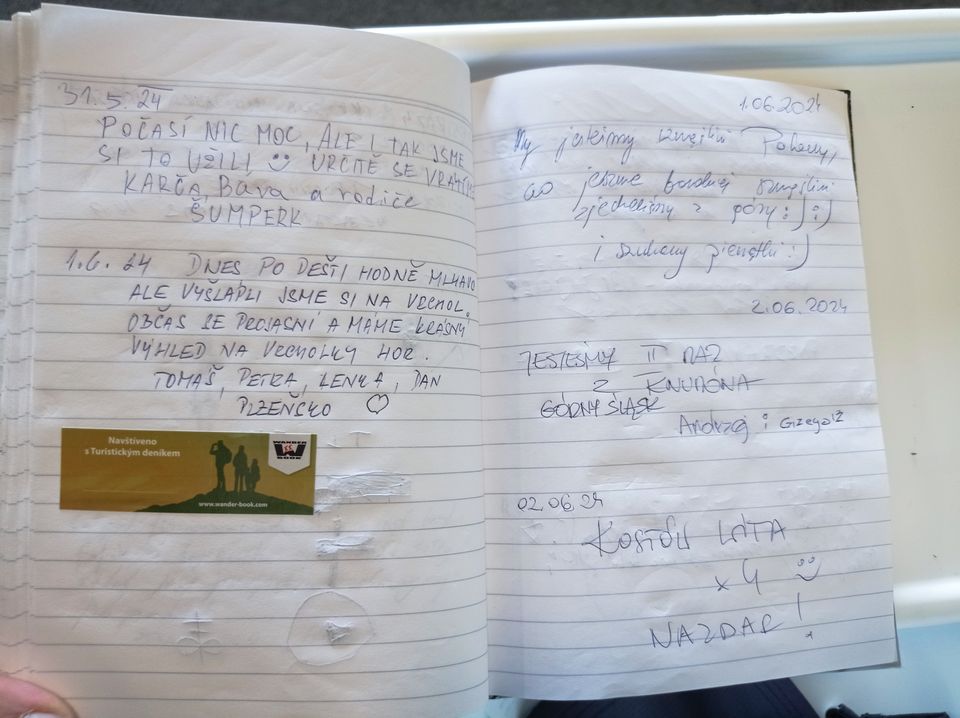 31.5.24
POČASÍ NIC MOC, ALE I TAK JSME
SI TO UŽILI, URČITĚ SE
KARČA, Bára a rodiče
ŠUMPERK
1.6.24 DNES PO DEŠTI HODNĚ MLHAVO
ALE VYŠLÁPLI JSME SI NA VRCHOL.
OBČAS SE PROJASNÍ A MÁME KRÁSNÝ
VÝHLED NA VRCHOLKY HOR.
TOMAŠ, PETRA, LENKA, DAN
PLZEŇSKO ♡
Navštíveno
s Turistickým deníkem
WANDER
BOOK
www.wander-book.com
1.06.2024
My jesteśmy
co jeszcze bardziej
zjechaliśmy z góry :) :)
i szukamy :)
2.06.2024
JESTEŚMY II RAZ
Z KNUROWA
GÓRNY ŚLĄSK
Andrzej i
02.06.24
LÁĎA
x 4
NAZDAR!